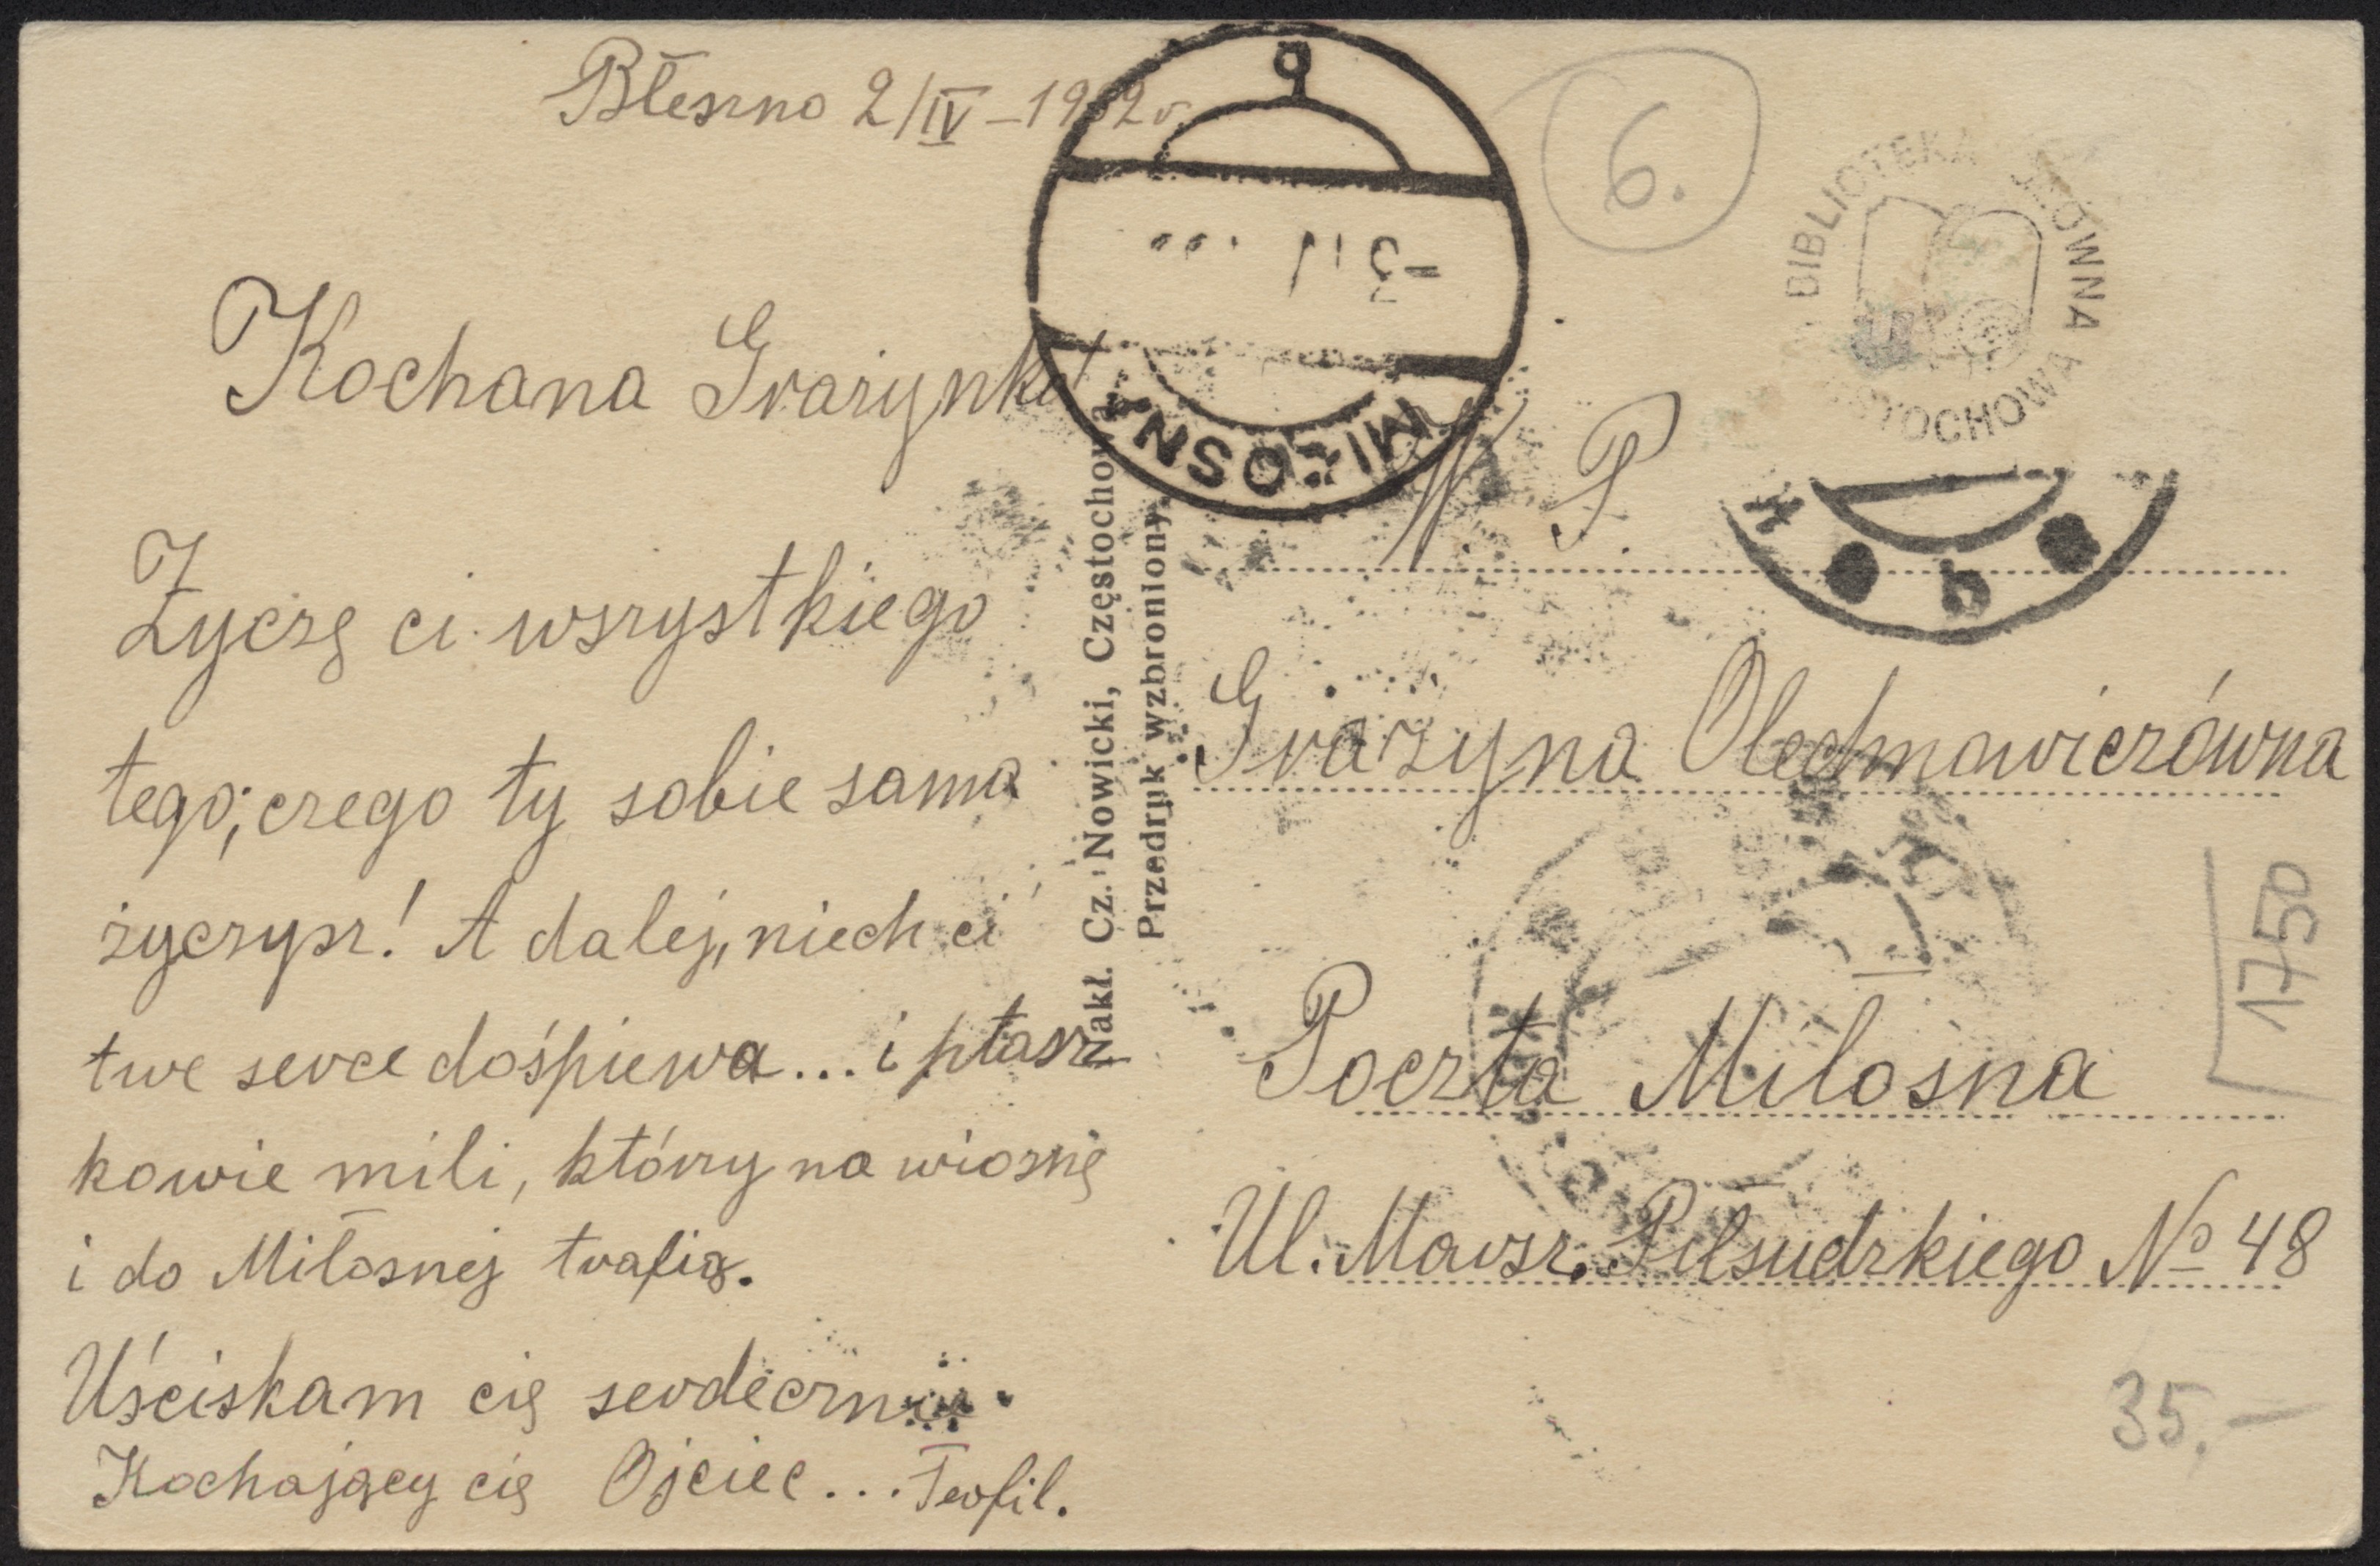 Błeszno 2/IV – 1932 r.
Kochana Grażynko!
Życzę ci wszystkiego
tego; czego ty sobie sama
życzysz! A dalej, niech ci
twe serce dośpiewa... i ptasz
kowie mili, którzy na wiosnę
i do Miłosnej trafią.
Uściskam cię serdecznie.
Kochający cię Ojciec... Teofil.
Nakł. Cz. Nowicki, Częstochowa
Przedruk wzbroniony.
MIŁOSNA
b
6.
BIBLIOTEKA GŁÓWNA
STOCHOWA
b
W P.
Grażyna Olechnowiczówna
Poczta Miłosna
Ul. Marsz. Piłsudzkiego № 48
1750
35,–